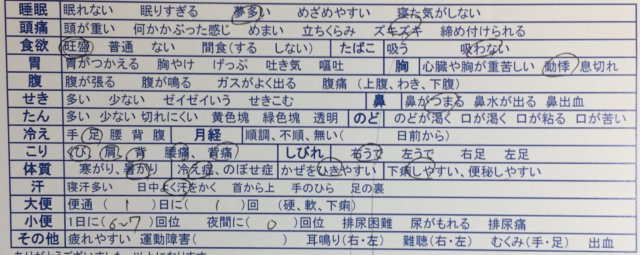 睡眠 眠れない 眠りすぎる 夢多い めざめやすい 寝た気がしない
頭痛 頭が重い 何かかぶった感じ めまい 立ちくらみ ズキズキ 締め付けられる
食欲 旺盛 普通 ない 間食(する しない) たばこ 吸う 吸わない
胃 胃がつかえる 胸やけ げっぷ 吐き気 嘔吐 胸 心臓や胸が重苦しい 動悸 息切れ
腹 腹が張る 腹が鳴る ガスがよく出る 腹痛 (上腹、わき、下腹)
せき 多い 少ない ゼイゼイいう せきこむ 鼻 鼻がつまる 鼻水が出る 鼻出血
たん 多い 少ない 切れにくい 黄色塊 緑色塊 透明 のど のどが渇く 口が渇く 口が粘る 口が苦い
冷え 手 足 腰 背 腹 月経 順調、不順、無い( 日前から)
こり くび、肩、背 腰痛、背痛 しびれ 右うで 左うで 右足 左足
体質 寒がり、暑がり 冷え症、のぼせ症 かぜをひきやすい 下痢しやすい、便秘しやすい
汗 寝汗多い 日中よく汗をかく 首から上 手のひら 足の裏
大便 便通(1)日に(1)回 (硬、軟、下痢)
小便 1日に(6~7)回位 夜間に(0)回位 排尿困難 尿がもれる 排尿痛
その他 疲れやすい 運動障害( ) 耳鳴り(右・左) 難聴(右・左) むくみ(手・足) 出血